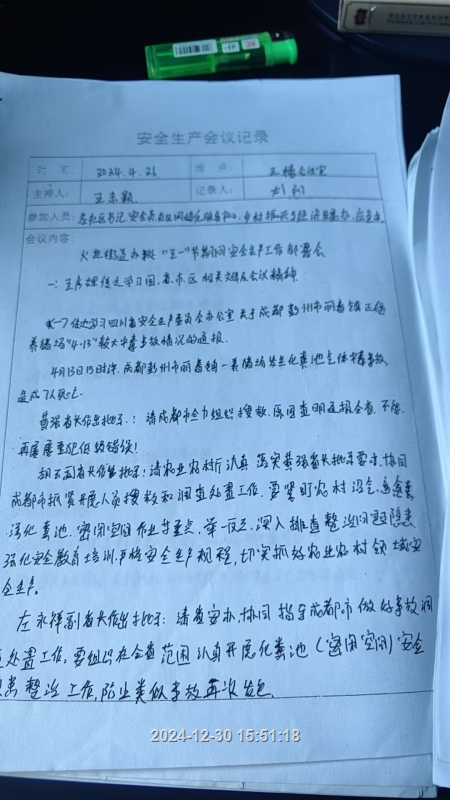 安全生产会议记录
时 间: 2024.4.26 地 点 三楼会议室
主持人: 王 记录人: 刘
参加人员: 各社区书记 安全员 社区网格化服务中心
会议内容: 火 街道办 "五一"节前安全生产工作部署会
一: 传达学习国、省、市、区 相关文件及会议精神.
传达学习四川省安全生产委员会办公室 关于成都彭州市丽春镇
养殖场"4·13"较大中毒事故情况的通报.
4月13日15时许, 成都彭州市丽春镇一养殖场发生化粪池气体中毒事故
造成7人死亡
黄强省长作出批示: 请成都市全力组织搜救, 原因查明通报全省, 不能
再屡屡重犯低级错误!
胡 副省长作出批示: 请农业农村厅认真落实黄强省长批示要求, 协同
成都市抓紧开展人员搜救和调查处置工作. 要紧盯农村沼气
化粪池、密闭空间作业等重点, 举一反三, 深入排查整治问题隐患
强化安全教育培训, 严格安全生产规程, 切实抓好农业农村领域安
全生产.
左永祥副省长作出批示: 请省安办, 协同指导成都市做好事故调
处置工作, 要组织在全省范围认真开展化粪池(密闭空间)安全
患整治工作, 防止类似事故再次发生
2024-12-30 15:51:18